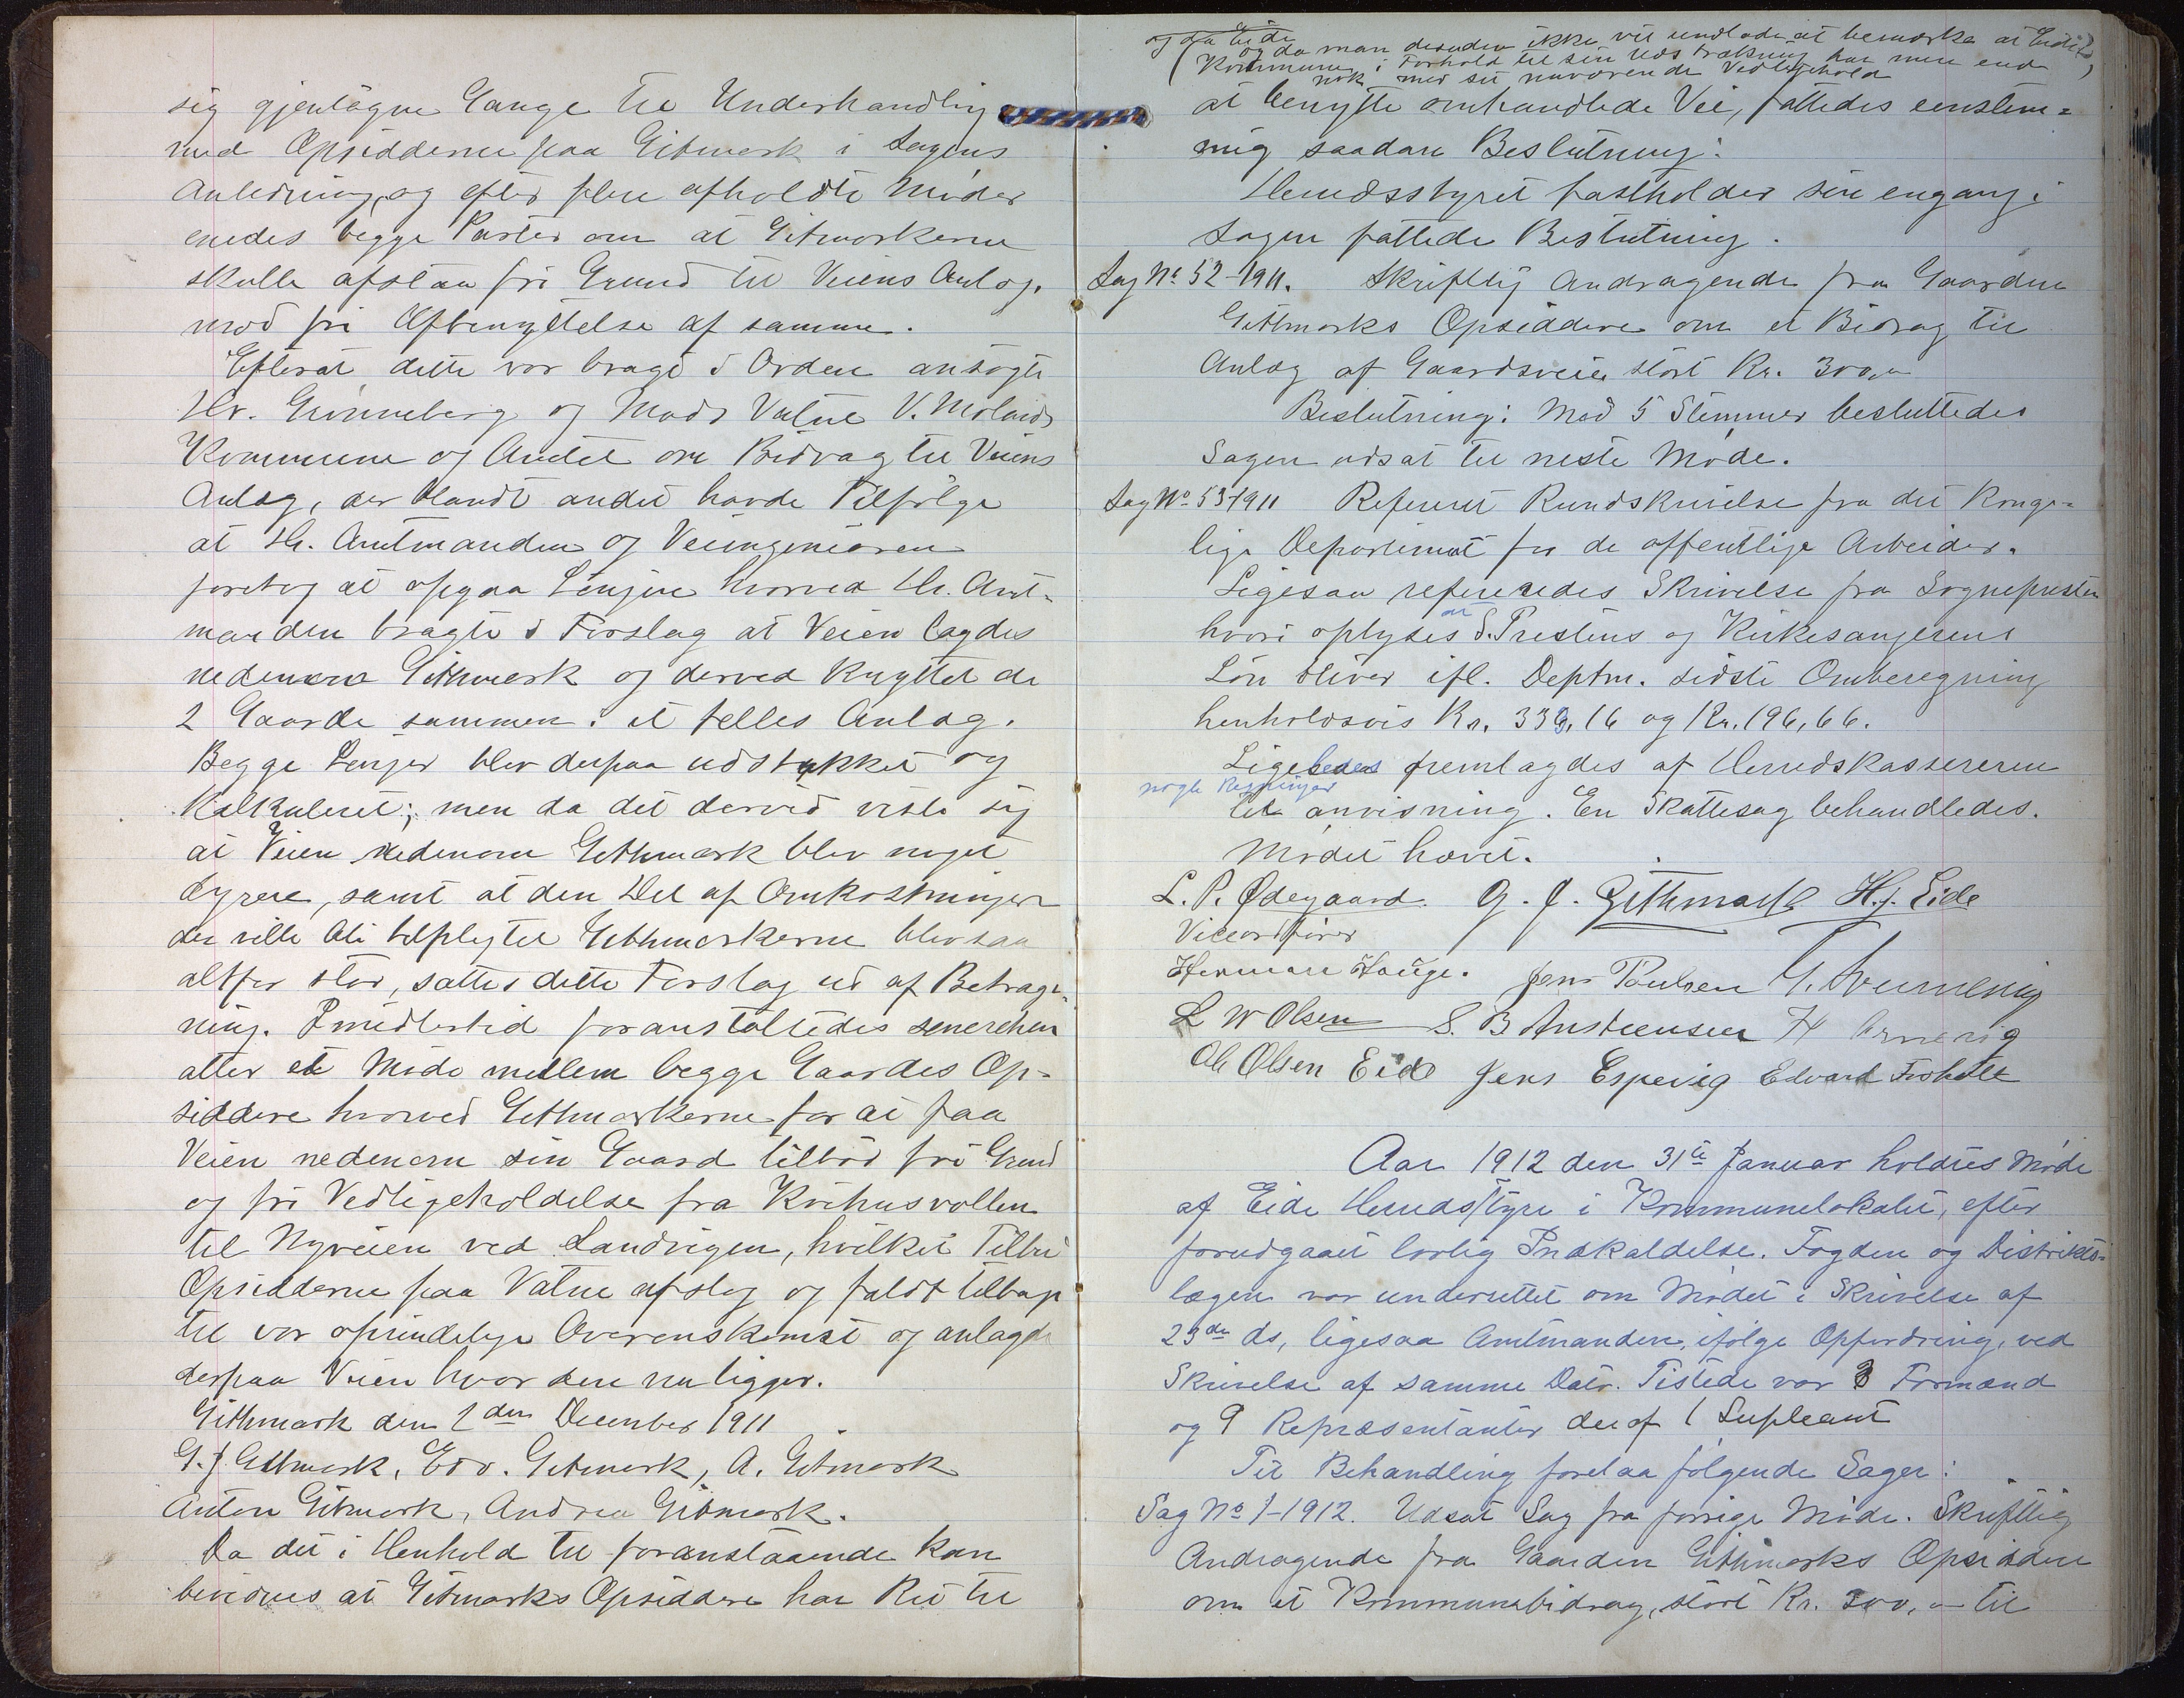 sig gjentagne Gange til Underhandling
med Opsidderne paa Gitmark i Sagens
Anledning, og efter flere afholdte Møder
enedes begge Parter om at Gitmarkerne
skulle afstaa fri Grund til Veiens Anlæg.
mod fri Afbenyttelse af samme.
Efterat dette var bragt i Orden ansøgte
Hr. Grønneberg og Mads Vatne V. Molands
Kommune og Amtet om Bidrag til Veiens
Anlæg, der blandt andet havde Tilfølge
at Hr. Amtmanden og Veiingeniøren
foretog at opgaa Linjen hvorved Hr. Amt-
manden bragte i Forslag at Veien lagdes
nedenom Githmark og derved knyttet de
2 Gaarde sammen i et felles Anlæg.
Begge Linjer blev derpaa udstukket og
kalkuleret; men da det derved viste sig
at Veien nedenom Githmark blev noget
dyrere, samt at den Del af Omkostninger
der ville bli tilplegtet Githmarkerne blev saa
altfor stor, sattes dette Forslag ud af Betragt-
ning. Imidlertid foranstaltedes senerehen
atter et Møde mellem begge Gaardes Op-
siddere hvorved Githmarkerne for at faa
Veien nedenom sin Gaard tilbød fri Grund
og fri Vedligeholdelse fra Kvihusvollen
til Nyveien ved Landvigen, hvilket Tilbud
Opsidderne paa Vatne afslog og faldt tilbage
til vor oprindelige Overenskomst og anlagde
derpaa Veien hvor den nu ligger.
Githmark den 2den December 1911
G. J. Githmark, Edv. Gitmark, A. Gitmark
Anton Gitmark, Andrea Gitmark.
Da det i Henhold til foranstaaende kan
bevidnes at Gitmarks Opsiddere har Ret til
og da Eide
(og da man desuden ikke vil undlade at bemærke at Eide
Kommune i Forhold til sin Udstrækning har mer end
nok med sit nuværende Vedligehold)
at benytte omhandlede Vei, fattedes eenstem-
mig saadan Beslutning:
Herredsstyret fastholder sin engang i
Sagen fattede Beslutning.
Sag No 52-1911. Skriftlig Andragende fra Gaarden
Githmarks Opsiddere om et Bidrag til
Anlæg af Gaardsveie stort Kr. 300,00
Beslutning: Mod 5 Stemmer besluttedes
Sagen udsat til neste Møde.
Sag No 53-1911 Referert Rundskrivelse fra det Konge-
lige Departement for de offentlige Arbeider.
Ligesaa refereredes Skrivelse fra Sognepresten
hvori oplyses at S. Prestens og Kirkesangerens
Løn bliver ifl. Deptm. sidste Omberegning
henholdsvis Kr. 333,16 og Kr. 196,66.
Ligeledes fremlagdes af Herredskassereren
nogle Regninger
til anvisning. En Skattesag behandledes.
Mødet hævet.
L. P. Ødegaard. G. J. Githmark H. J. Eide
Viceordfører
Herman Hauge. Jens Poulsen
L W Olsen S. B Anstensen H
Ole Olsen Eide Jens Espevig Edvard Froholt
Aar 1912 den 31te Januar holdtes Møde
af Eide Herredsstyre i Kommunelokalet, efter
forudgaaet lovlig Indkaldelse. Fogden og Distrikts-
lægen var underrettet om Mødet i Skrivelse af
23de ds, ligesaa Amtmanden, ifølge Opfordring, ved
Skrivelse af samme Dato. Tilstede var 3 Formænd
og 9 Repræsentanter deraf 1 Supleant
Til Behandling forelaa følgende Sager:
Sag No 1-1912. Udsat Sag fra forrige Møde. Skriftlig
Andragende fra Gaarden Githmarks Opsiddere
om et Kommunebidrag, stort Kr. 300,00 til